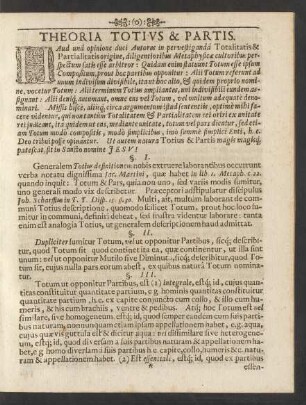 THEORIA TOTIUS & PARTIS.
Haud una opinione duci Autores in pervestigandâ Totalitatis &
Partialitatis origine, diligentioribus Metaphysicæ cultoribus per-
spectum satis esse arbitror: Quidam enim statuunt Totum esse ipsum
Compositum, prout hoc partibus opponitur: Alii Totum referunt ad
unum indivisum divisibile, itaut hoc alio, & quidem proprio nomi-
ne, vocetur Totum: Alii terminum Totius ampliantes, uni indivisibili eundem as-
signant: Alii deniq; autumant, omne ens vel Totum, vel omnium adæquatè denomi-
nari.
videntur, qui
reijudicant, ita quidem ut ens, mediante unitate, totum vel pars dicatur, scilicet
Totum modo compositis, modò simplicibus, imò summè simplici Enti, h. e.
Deo tribui posse opinantur. Ut autem natura Totius & Partis magis magisq;
patescat, sit in Sancto nomine JESU!
§. I.
Generalem Totius definitionem nobis extruere laborantibus occurrunt
verba notatu dignissima Jac. Martini, quæ habet in lib. 1. Metaph. c. 22.
quando inquit: Totum & Pars, quia non uno, sed variis modis sumitur,
uno generali modo vix describetur. Præceptori astipulatur discipulus
Job. Scharffius in T. T. Disp. 15. Multi, ait, multum laborant de com-
muni Totius descriptione, quomodo scilicet Totum, prout hoc nomen so-
lummodo in communi, definiri debeat, sed frustra videntur laborare: tantum
enim est analogia Totius, ut definitionem haud admittat.
§. II.
Dupliciter sumitur Totum, vel ut opponitur Partibus, sicq; describi-
tur, quod Totum sit quod continet ita ea, quæ continentur, ut illa sint
unum: vel ut opponitur Mutilo sive Diminuto, sicq; describitur, quod To-
tum sit, cujus nulla pars eorum abest, ex quibus naturâ Totum nomina-
tur.
§. III.
Totum ut opponitur Partibus, est: (1) Integrale, estq; id, cujus quan-
titas constituitur quantitate partium, e. g. hominis quantitas constituitur
quantitate partium, h. e. ex capite conjuncto cum collo, & illo cum hu-
meris, & his cum brachiis, ventre & pedibus. Atq; hoc Totum est vel
similare, sive homogeneum, estq; id, quod semper eandem cum suis parti-
bus naturam, nonnunquam etiam ipsam appellationem habet, e. g. aqua,
cujus quævis guttula est & dicitur aqua: vel dissimilare sive heterogene-
um, estq; id, quod diversam à suis partibus naturam & appellationem ha-
bet, e. g. homo diversam à suis partibus h. e. capite, collo, humeris &c. natu-
ram & appellationem habet. (2) Est essentiale, estq; id, quod ex partibus
essen-